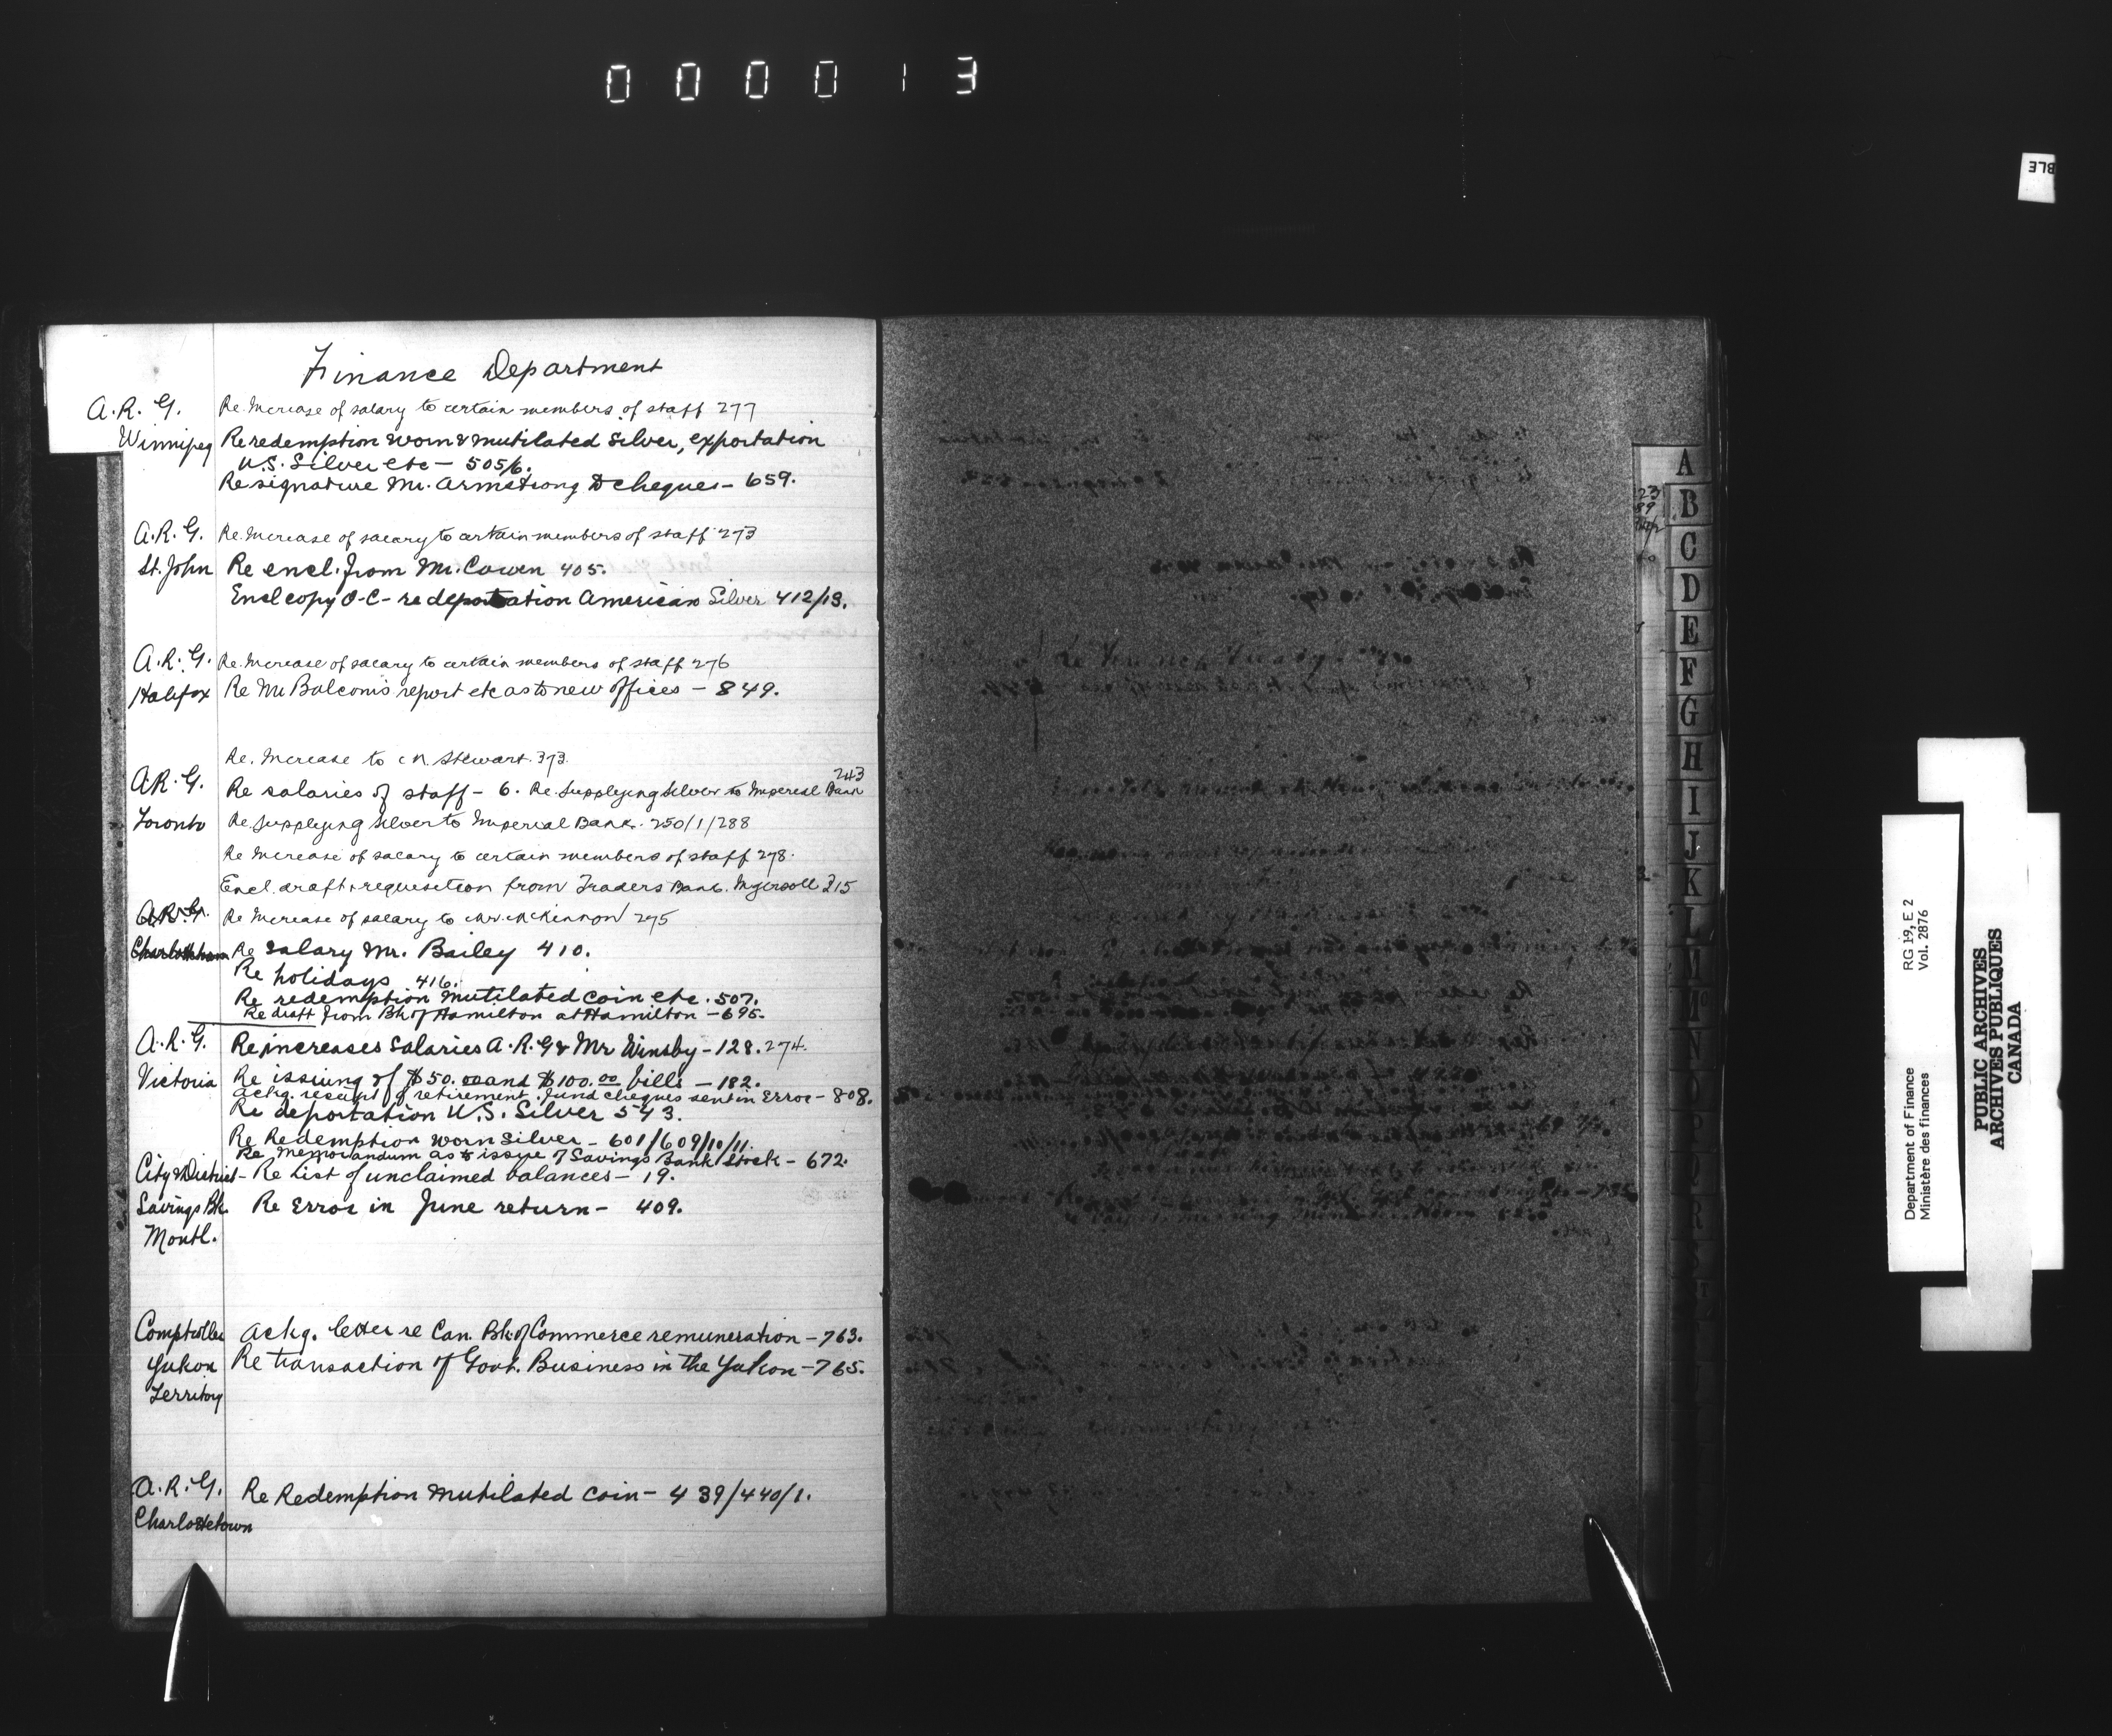 000013
BLE
Finance Department
A. R. G. Re. Increase of salary to certain members of staff 277
Winnipeg Re redemption worn & mutilated Silver, exportation
U.S. Silver etc – 505/6.
Re signature Mr. Armstrong to cheques – 659.
A. R. G. Re. Increase of salary to certain members of staff 273
St. John Re encl. from Mr. Cowen 405.
Encl copy O-C- re deportation American Silver 412/13.
A. R. G. Re. Increase of salary to certain members of staff 276
Halifax Re Mr Balcom's report etc as to new offices – 849.
Re. Increase to Stewart. 373.
243
A R. G. Re salaries of staff – 6. Re. Supplying Silver to Imperial Bank
Toronto Re. Supplying Silver to Imperial Bank. 250/1/288
Re Increase of salary to certain members of staff 278.
Encl. draft & requisition from Traders Bank. Ingersoll 315
A. R. G. Re Increase of salary to McKinnon 275
Re Salary Mr. Bailey 410.
Re holidays 416.
Re redemption Mutilated Coin etc. 507.
Re draft from Bk of Hamilton at Hamilton – 695.
A. R. G. Re increases Salaries A. R. G & Mr Winsby – 128. 274.
Victoria Re issuing of $50.00 and $100.00 bills – 182.
Ackg. receipt of retirement fund cheques sent in Error – 808.
Re deportation U.S. Silver 543.
Re Redemption worn Silver – 601/609/10/11.
Re Memorandum as to issue of Savings Bank Stock – 672.
City & District – Re List of unclaimed balances – 19.
Savings Bk. Re Error in June return – 409.
Montl.
Comptroller Ackg. letter re Can. Bk of Commerce remuneration – 763.
Yukon Re transaction of Govt. Business in the Yukon – 765.
Territory
A. R. G. Re Redemption Mutilated Coin – 439/440/1.
Charlottetown
A
B
C
D
E
F
G
H
I
J
K
L
M
Mc
N
O
P
Q
R
S
T
Department of Finance
Ministère des finances
RG 19, E 2
Vol. 2876
PUBLIC ARCHIVES
ARCHIVES PUBLIQUES
CANADA